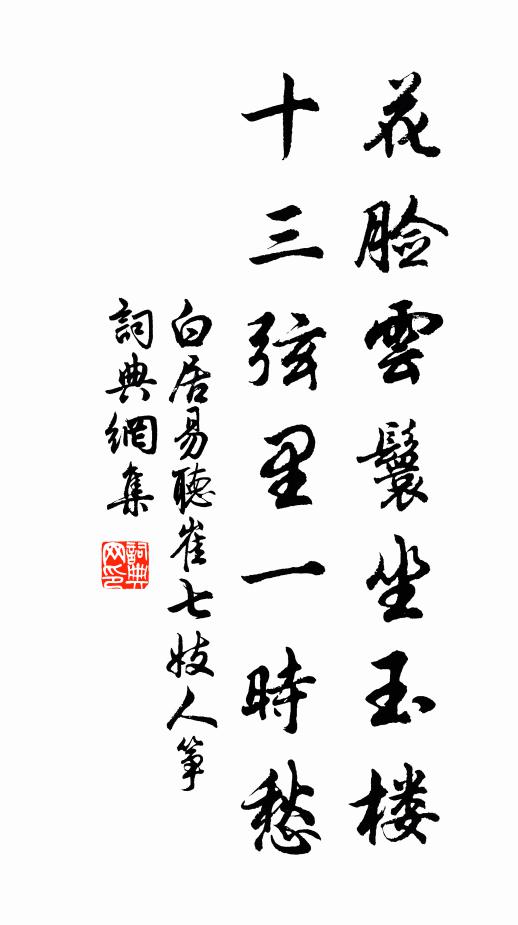 花脸雲鬟坐玉楼
十三弦里一時愁
白居易聽崔七妓人筝
詞典網集
詞典网印